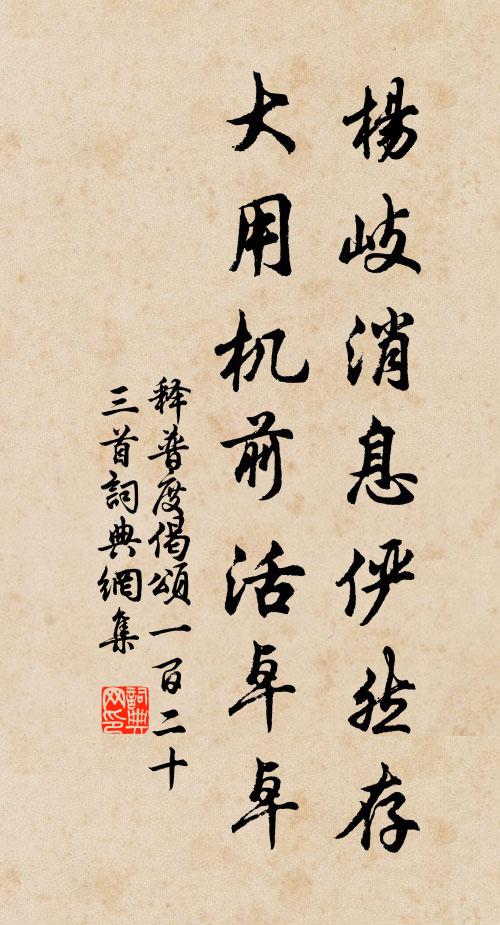 楊岐消息俨然存
大用机前活卓卓
释普度偈頌一百二十
三首詞典網集
詞典网印